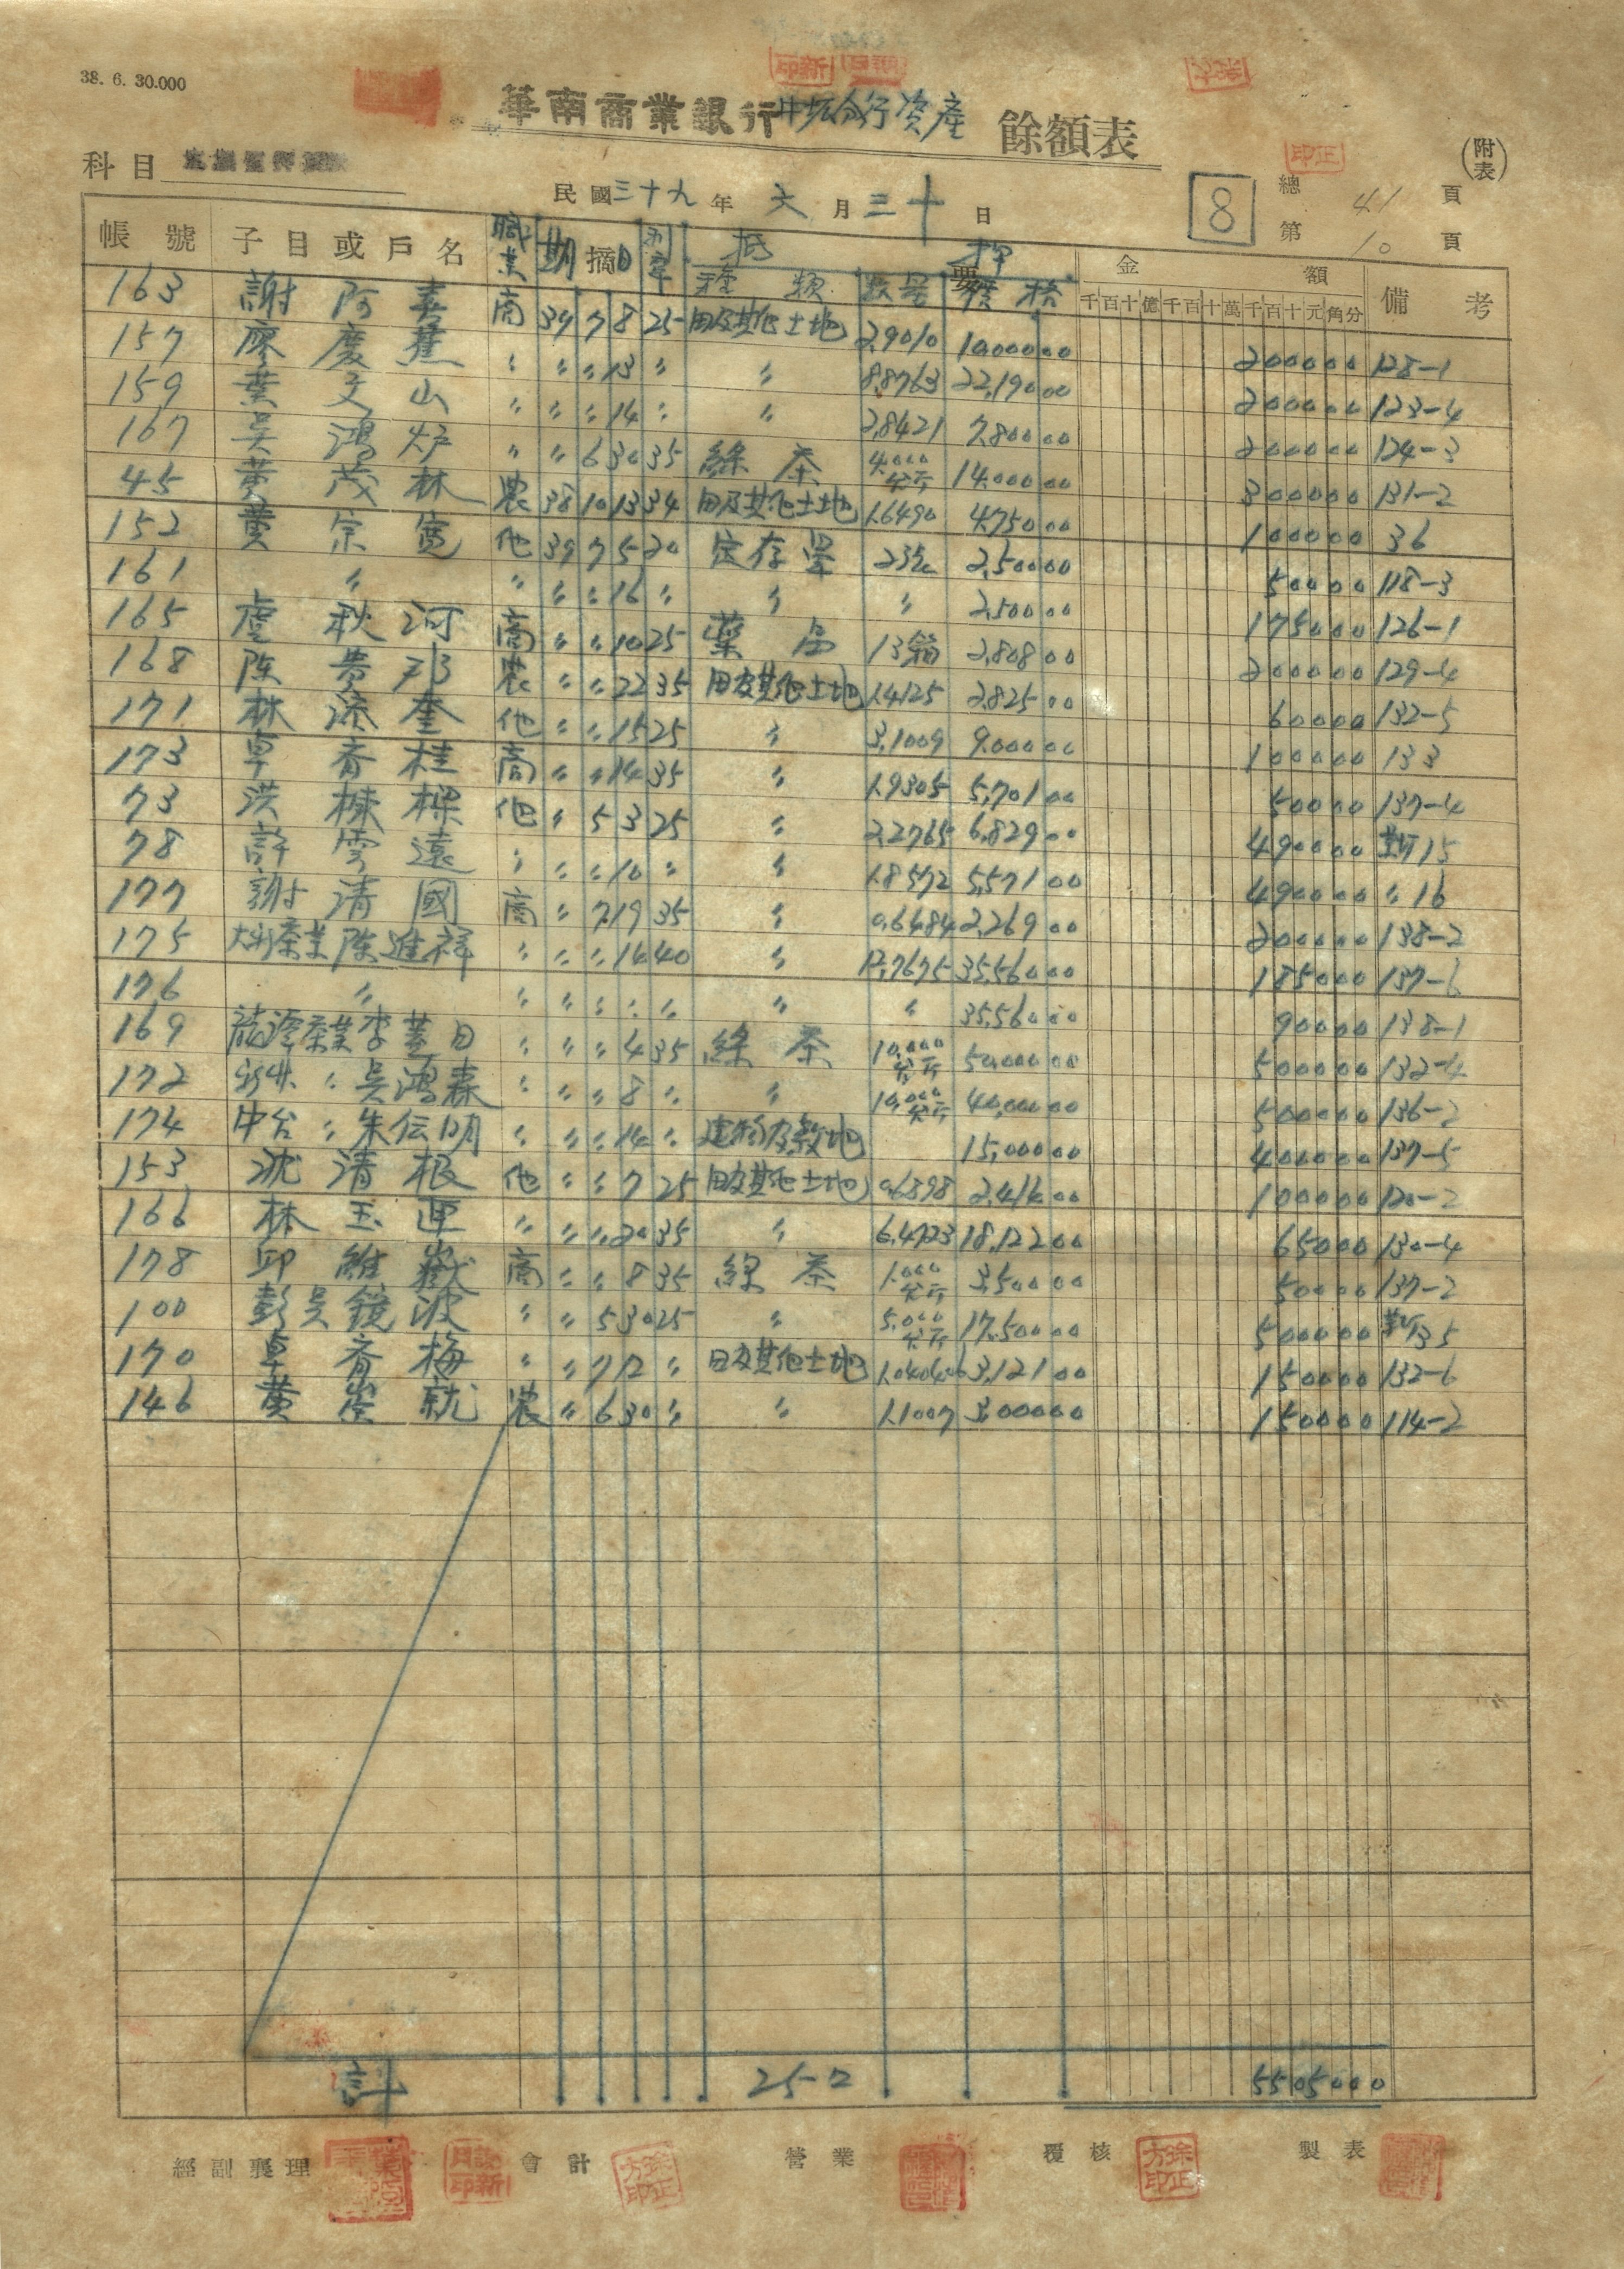 38. 6. 30.000
華南商業銀行 分行資產 餘額表
(附表)
科目
民國三十九年 六月三十日
8
總 41 頁
第 10 頁
帳號 子目或戶名 職業 期日 摘要 利率 抵押 種類 數量 價格 金額 備考
千百十億千百十萬千百十元角分
163 謝阿 商 39 7 8 25 田及其他土地 2,9010 10,000 00 2000 00 128-1
157 廖慶 〃 〃 〃 13 〃 〃 8,8763 22,190 00 2000 00 123-4
159 葉文山 〃 〃 〃 14 〃 〃 2,8421 7,800 00 2000 00 124-3
167 吳鴻炉 〃 〃 6 30 35 綠茶 4,000公斤 14,000 00 3000 00 131-2
45 黃茂林 農 38 10 13 34 田及其他土地 1,6490 4,750 00 1000 00 36
152 黃宗寬 他 39 7 5 20 定存單 2,500 00 500 00 118-3
161 〃 〃 〃 〃 16 〃 〃 〃 2,500 00 1750 00 126-1
165 秋河 商 〃 〃 10 25 藥品 13箱 2,808 00 2000 00 129-4
168 陈 農 〃 〃 22 35 田及其他土地 1,4125 2,825 00 600 00 132-5
171 林添奎 他 〃 〃 15 25 〃 3,1009 9,000 00 1000 00 133
173 卓香桂 商 〃 〃 14 35 〃 1,9305 5,701 00 500 00 137-4
73 洪棟樑 他 〃 5 3 25 〃 2,2765 6,829 00 4900 00 15
78 許雪遠 〃 〃 〃 10 〃 〃 1,8572 5,571 00 4900 00 〃 16
177 謝清國 商 〃 7 19 35 〃 0,6484 2,269 00 2000 00 138-2
175 茶業陈進祥 〃 〃 〃 14 40 〃 12,7675 35,560 00 1850 00 137-6
176 〃 〃 〃 〃 〃 〃 〃 〃 35,560 00 900 00 138-1
169 茶業李蓋日 〃 〃 〃 4 35 綠茶 10,000公斤 50,000 00 5000 00 132-4
172 〃 吳鴻森 〃 〃 〃 8 〃 〃 10,000公斤 40,000 00 5000 00 136-2
174 中台 〃 朱伝明 〃 〃 〃 14 〃 建物及敷地 15,000 00 4000 00 137-5
153 沈清根 他 〃 〃 7 25 田及其他土地 0,6898 2,414 00 1000 00 120-2
166 林玉 〃 〃 〃 20 35 〃 6,4723 18,122 00 650 00 130-4
178 邱維嶽 商 〃 〃 8 35 綠茶 1,000公斤 3,500 00 500 00 137-2
100 彭吳鏡波 〃 〃 5 30 25 〃 5,000公斤 17,500 00 5000 00 35
170 卓香梅 〃 〃 7 12 〃 田及其他土地 3,121 00 1500 00 132-6
146 黃 就 農 〃 6 30 〃 〃 1,1007 3,000 00 1500 00 114-2
計 25口 55050 00
經副襄理 會計 營業 覆核 製表